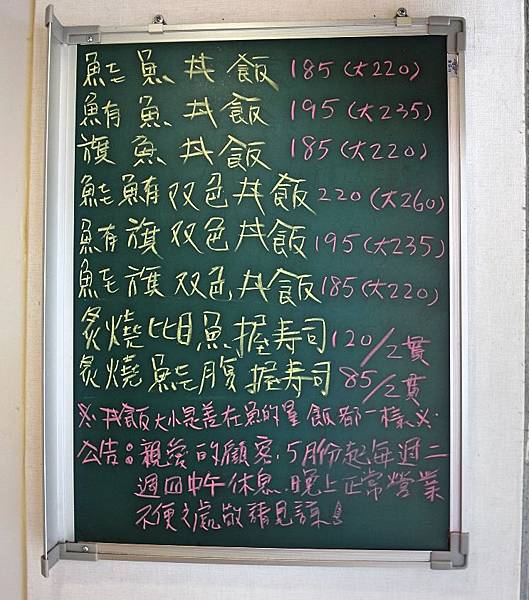 鮭魚丼飯 185(大220)
鮪魚丼飯 195(大235)
旗魚丼飯 185(大220)
鮭鮪双色丼飯 220(大260)
鮪旗双色丼飯 195(大235)
鮭旗双色丼飯 185(大220)
炙燒比目魚握寿司 120/2貫
炙燒鮭腹握寿司 85/2貫
※丼飯大小是差在魚的量 飯都一樣※
公告:親愛的顧客,5月份起每週二
週四中午休息 晚上正常營業
不便之處敬請見諒!